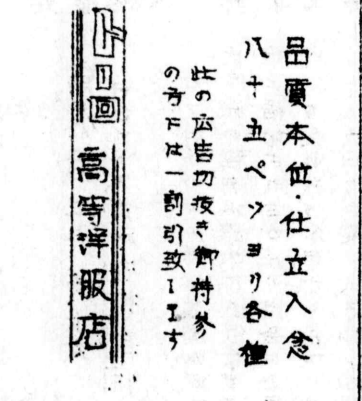 品質本位・仕立入念
八十五ペソヨリ各種
此の広告切抜き御持参
の方には一割引致します
高等洋服店